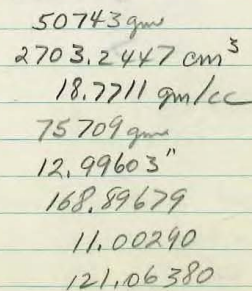 50743 gm
2703.2447 cm³
18.7711 gm/cc
75709 gm
12.99603"
168.89679
11.00290
121.06380